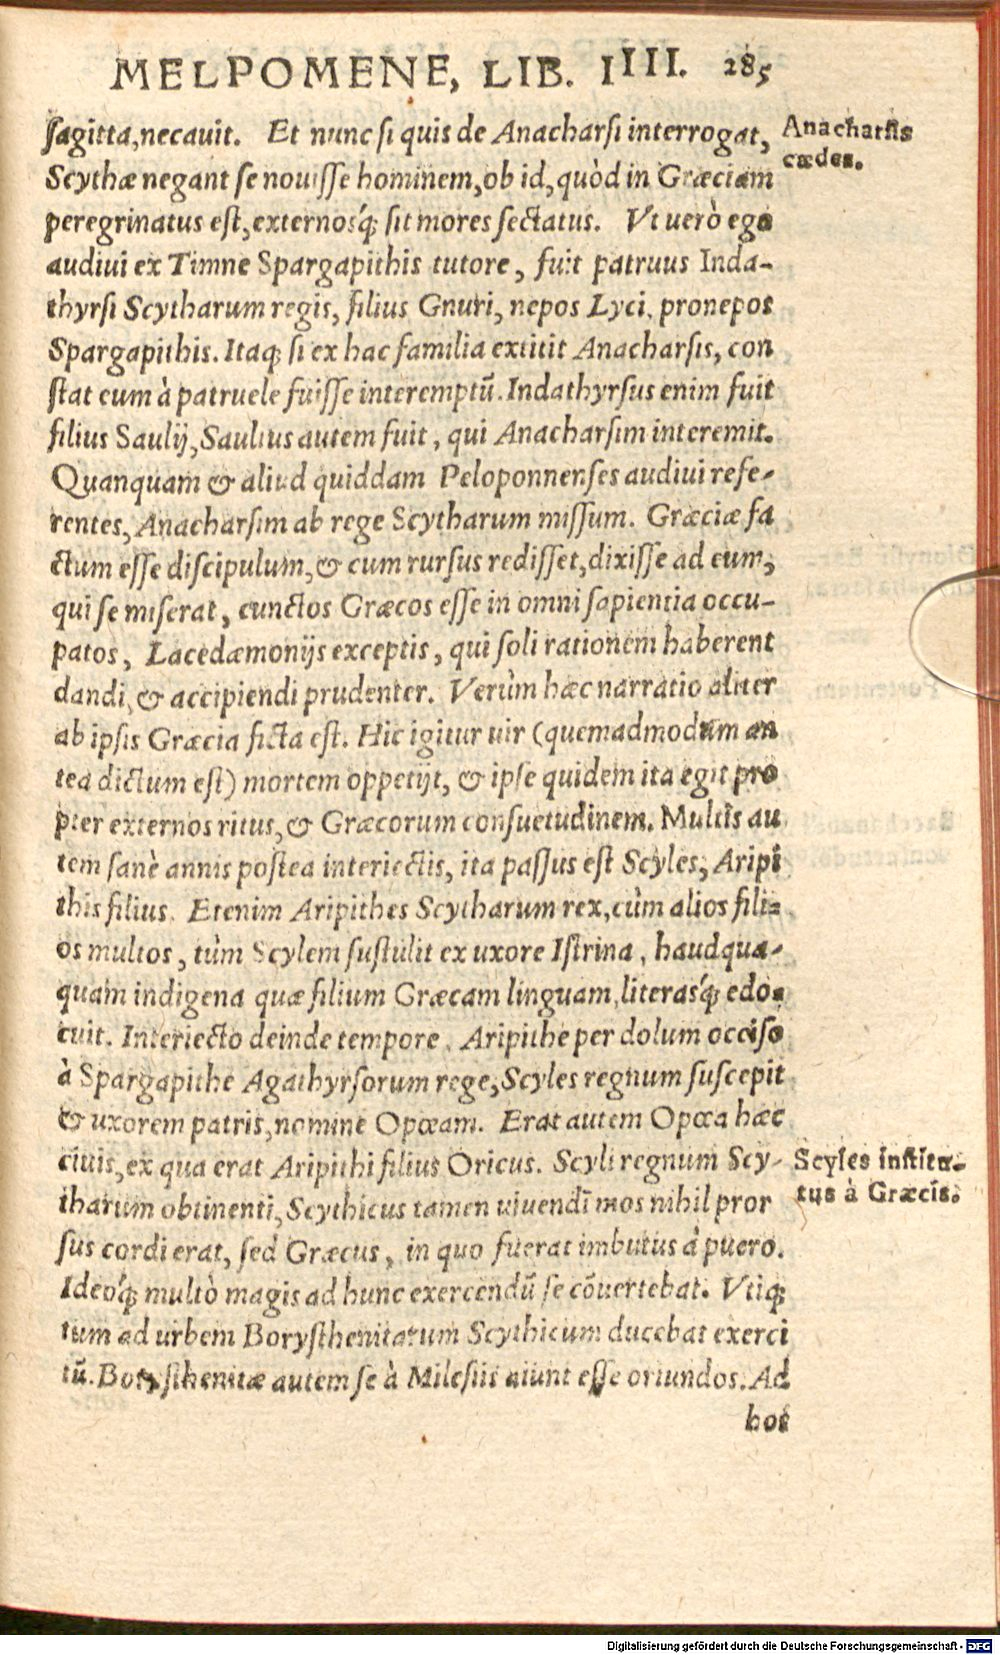 MELPOMENE, LIB. IIII. 285
sagitta, necauit. Et nunc si quis de Anacharsi interrogat,
Scythæ negant se nouisse hominem, ob id, quòd in Græciam
peregrinatus est, externosq́; sit mores sectatus. Vt uerò ego
audiui ex Timne Spargapithis tutore, fuit patruus Inda-
thyrsi Scytharum regis, filius Gnuri, nepos Lyci, pronepos
Spargapithis. Itaq; si ex hac familia extitit Anacharsis, con
stat eum à patruele fuisse interemptū. Indathyrsus enim fuit
filius Saulij, Saulius autem fuit, qui Anacharsim interemit.
Quanquam & aliud quiddam Peloponnenses audiui refe-
rentes, Anacharsim ab rege Scytharum missum. Græciæ fa
ctum esse discipulum, & cum rursus redisset, dixisse ad eum,
qui se miserat, cunctos Græcos esse in omni sapientia occu-
patos, Lacedæmonijs exceptis, qui soli rationem haberent
dandi, & accipiendi prudenter. Verùm hæc narratio aliter
ab ipsis Græcia ficta est. Hic igitur uir (quemadmodum an
tea dictum est) mortem oppetijt, & ipse quidem ita egit pro
pter externos ritus, & Græcorum consuetudinem. Multis au
tem sanè annis postea interiectis, ita passus est Scyles, Aripi
this filius. Etenim Aripithes Scytharum rex, cùm alios fili-
os multos, tùm Scylem sustulit ex uxore Istrina, haudqua-
quam indigena quæ filium Græcam linguam, literasq́; edo-
cuit. Interiecto deinde tempore, Aripithe per dolum occiso
à Spargapithe Agathyrsorum rege, Scyles regnum suscepit
& uxorem patris, nomine Opœam. Erat autem Opœa hæc
ciuis, ex qua erat Aripithi filius Oricus. Scyli regnum Scy-
tharum obtinenti, Scythicus tamen uiuendi mos nihil pror
sus cordi erat, sed Græcus, in quo fuerat imbutus à puero.
Ideoq́; multò magis ad hunc exercendū se cōuertebat. Vtiq;
tum ad urbem Borysthenitarum Scythicum ducebat exerci
tū. Borysthenitæ autem se à Milesiis aiunt esse oriundos. Ad
hoc
Anacharsis
cædes.
Scyles institu-
tus à Græcis.
Digitalisierung gefördert durch die Deutsche Forschungsgemeinschaft - DFG